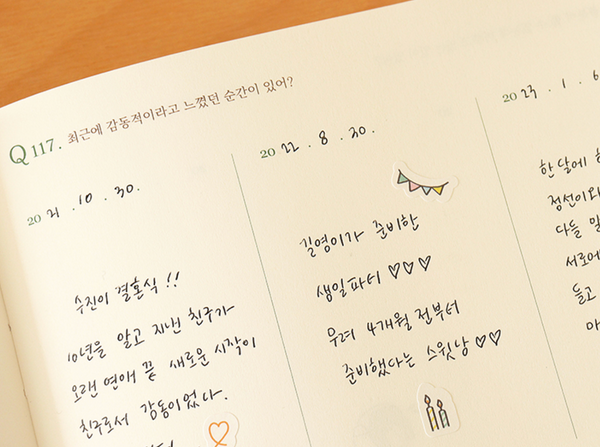 Q 117. 최근에 감동적이라고 느꼈던 순간이 있어?
20 21 . 10 . 30.
수진이 결혼식 !!
10년을 알고 지낸 친구가
오랜 연애 끝 새로운 시작이
친구로서 감동이었다.
20 22 . 8 . 20.
길영이가 준비한
생일파티 ♡♡♡
무려 4개월 전부터
준비했다는 스윗남 ♡♡
20 23 . 1 . 6
한 달에
정선이와
다들
서로에
듣고